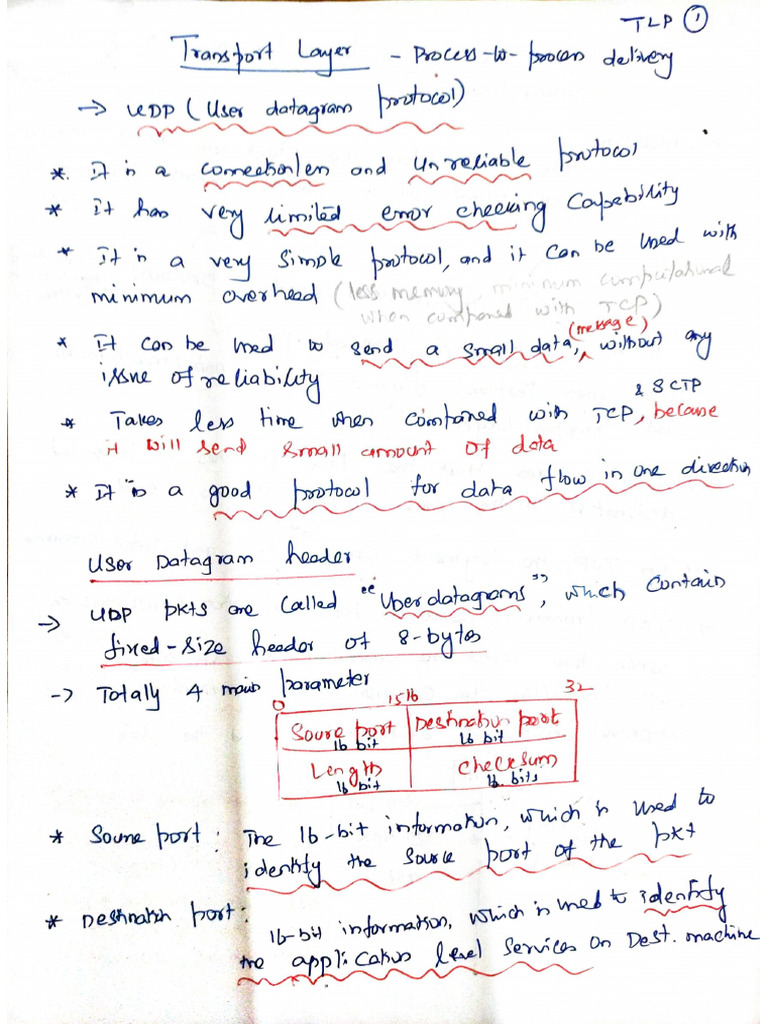 TLP ①
Transport Layer - Process-to-process delivery
→ UDP (User datagram protocol)
*. It is a connectionless and Unreliable protocol
* It has very limited error checking Capability
* It is a very simple protocol, and it can be used with
minimum overhead (less memory, minimum computational
when compared with TCP)
(message)
* It can be used to send a small data, without any
issue of reliability
& SCTP
* Takes less time when compared with TCP, because
it will send small amount of data
* It is a good protocol for data flow in one direction
User Datagram header
→ UDP pkts are called "User datagrams", which contain
fixed-size header of 8-bytes
→ Totally 4 main parameter
0 15 16 32
Source port Destination port
16 bit 16 bit
Length Checksum
16 bit 16 bits
* Source port: The 16-bit information, which is used to
identify the source port of the pkt
* Destination port: 16-bit information, which is used to identify
the application level services on Dest. machine